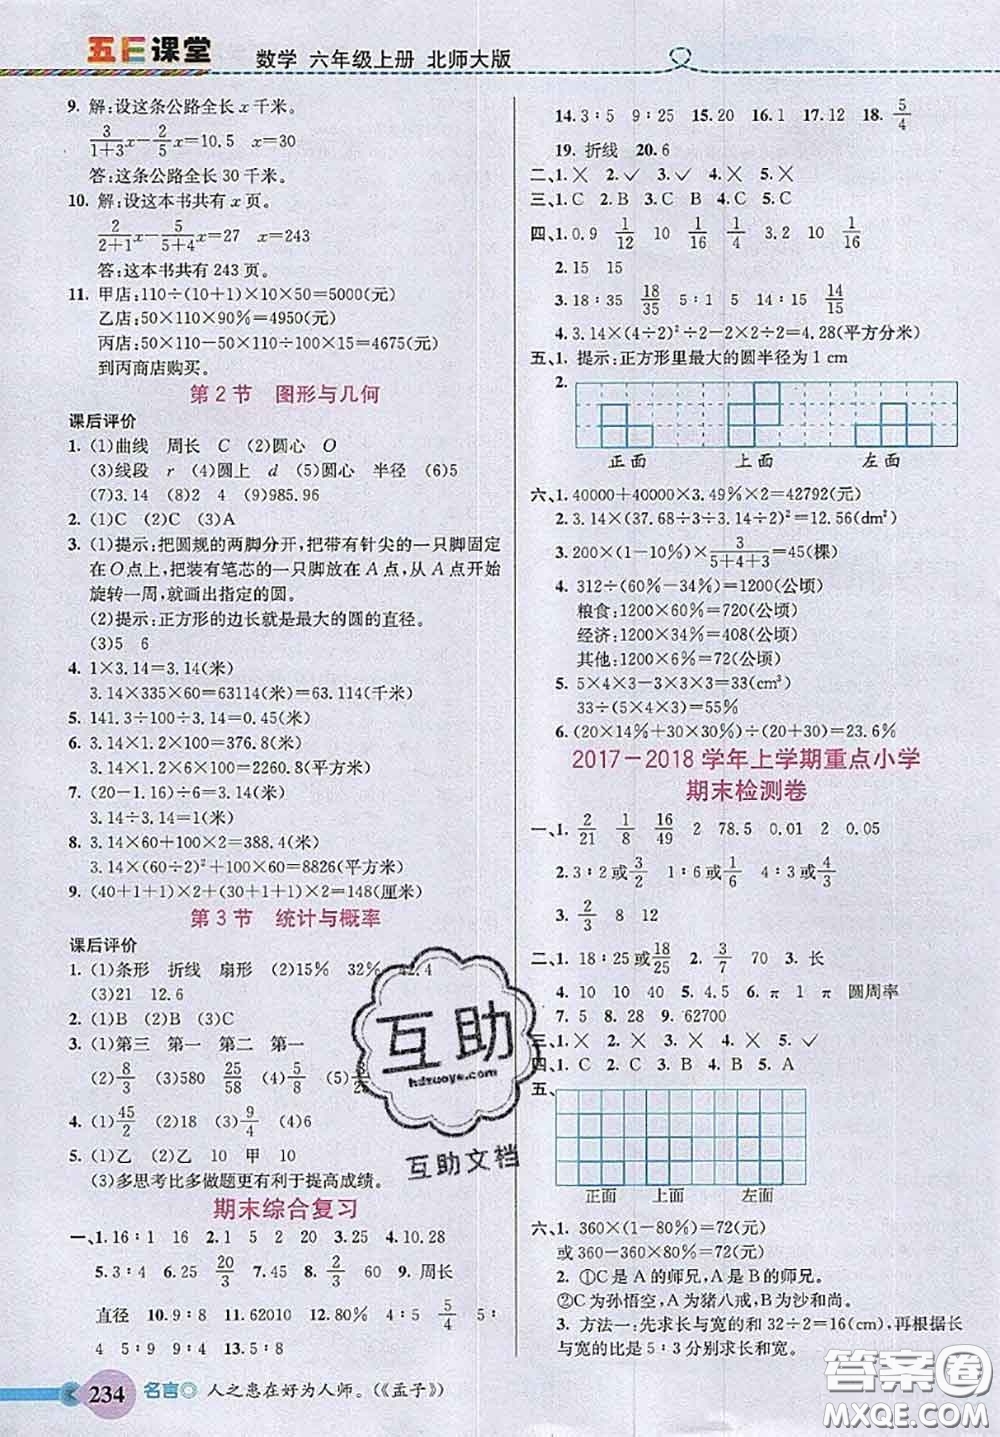 五E课堂 数学 六年级上册 北师大版
9. 解:设这条公路全长 x 千米。
3/(1+3)x−2/5x=10.5 x=30
答:这条公路全长 30 千米。
10. 解:设这本书共有 x 页。
2/(2+1)x−5/(5+4)x=27 x=243
答:这本书共有 243 页。
11. 甲店:110÷(10+1)×10×50=5000(元)
乙店:50×110×90%=4950(元)
丙店:50×110−50×110÷100×15=4675(元)
到丙商店购买。
第 2 节 图形与几何
课后评价
1. (1)曲线 周长 C (2)圆心 O
(3)线段 r (4)圆上 d (5)圆心 半径 (6)5
(7)3.14 (8)2 4 (9)985.96
2. (1)C (2)C (3)A
3. (1)提示:把圆规的两脚分开,把带有针尖的一只脚固定
在 O 点上,把装有笔芯的一只脚放在 A 点,从 A 点开始
旋转一周,就画出指定的圆。
(2)提示:正方形的边长就是最大的圆的直径。
(3)5 6
4. 1×3.14=3.14(米)
3.14×335×60=63114(米)=63.114(千米)
5. 141.3÷100÷3.14=0.45(米)
6. 3.14×1.2×100=376.8(米)
3.14×1.2×6×100=2260.8(平方米)
7. (20−1.16)÷6=3.14(米)
3.14÷3.14=1(米)
8. 3.14×60+100×2=388.4(米)
3.14×(60÷2)²+100×60=8826(平方米)
9. (40+1+1)×2+(30+1+1)×2=148(厘米)
第 3 节 统计与概率
课后评价
1. (1)条形 折线 扇形 (2)15% 32% 42.4
(3)21 12.6
2. (1)B (2)B (3)B
3. (1)第三 第一 第二 第一
(2)8/3 (3)580 25/58 (4)5/8 (5)5/3
4. (1)45/2 (2)18 (3)9/4 (4)
5. (1)乙 (2)乙 10 甲 10
(3)多思考比多做题更有利于提高成绩。
期末综合复习
一、1. 16∶1 16 2. 1 5 2 20 3. 25 4. 10.28
5. 3∶4 6. 25 20/3 7. 45 8. 3/2 60 9. 周长
直径 10. 9∶8 11. 62010 12. 80% 4∶5 5/4 5∶
4 5∶9 9∶4 13. 5∶8
234 名言 人之患在好为人师。(《孟子》)
14. 3∶5 9∶25 15. 20 16. 1 17. 12 18. 5/4
19. 折线 20. 6
二、1. × 2. ✓ 3. ✓ 4. × 5. ×
三、1. C 2. B 3. C B 4. C 5. C
四、1. 0.9 1/12 10 1/16 1/4 3.2 10 1/16
2. 15 15
3. 18∶35 18/35 5∶1 5 14∶15 14/15
4. 3.14×(4÷2)²÷2−2×2÷2=4.28(平方分米)
五、1. 提示:正方形里最大的圆半径为 1 cm
2.
正面 上面 左面
六、1. 40000+40000×3.49%×2=42792(元)
2. 3.14×(37.68÷3÷3.14÷2)²=12.56(dm²)
3. 200×(1−10%)×3/(5+4+3)=45(棵)
4. 312÷(60%−34%)=1200(公顷)
粮食:1200×60%=720(公顷)
经济:1200×34%=408(公顷)
其他:1200×6%=72(公顷)
5. 5×4×3−3×3×3=33(cm³)
33÷(5×4×3)=55%
6. (20×14%+30×30%)÷(20+30)=23.6%
2017−2018 学年上学期重点小学
期末检测卷
一、1. 2/21 1/8 16/49 2 78.5 0.01 2 0.05
2. 3∶2或3/2 1∶6或1/6 4∶3或4/3
3. 2/3 8 12
二、1. 18∶25或18/25 2. 3/7 70 3. 长
4. 10 10 40 5. 4.5 6. π 1 π 圆周率
7. 5 8. 5 9. 62700
三、1. × 2. × 3. ✓ 4. × 5. ×
四、1. C 2. C 3. B 4. A 5. C
五、
正面 上面 左面
六、1. 360×(1−80%)=72(元)
或 360−360×80%=72(元)
2. ①C 是 A 的师兄,A 是 B 的师兄。
②C 为孙悟空,A 为猪八戒,B 为沙和尚。
3. 方法一:先求长与宽的和 32÷2=16(cm),再根据长
与宽的比是 5∶3 分别求长和宽。
互助
hdzuoye.com
互助文档
答案圈
MXQE.COM